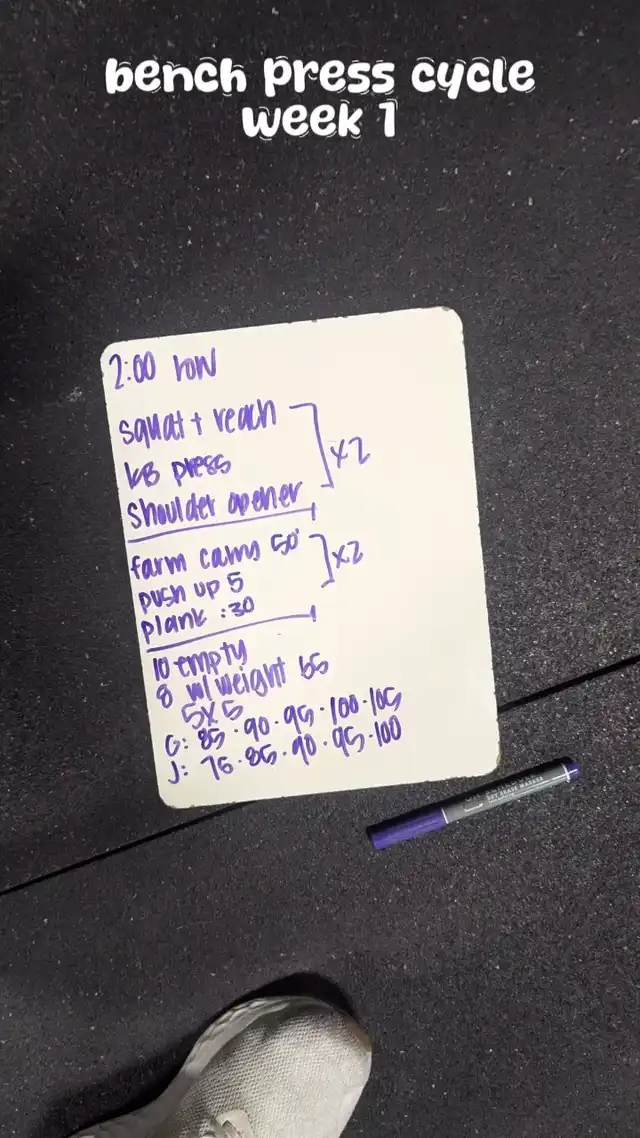 bench press cycle
week 1
2:00 row
squat + reach
KB press
shoulder opener
x2
farm carry 50'
push up 5
plank :30
x2
10 empty
8 w/ weight 65
5x5
G: 85 · 90 · 95 · 100 · 105
J: 75 · 85 · 90 · 95 · 100
DRY ERASE MARKER